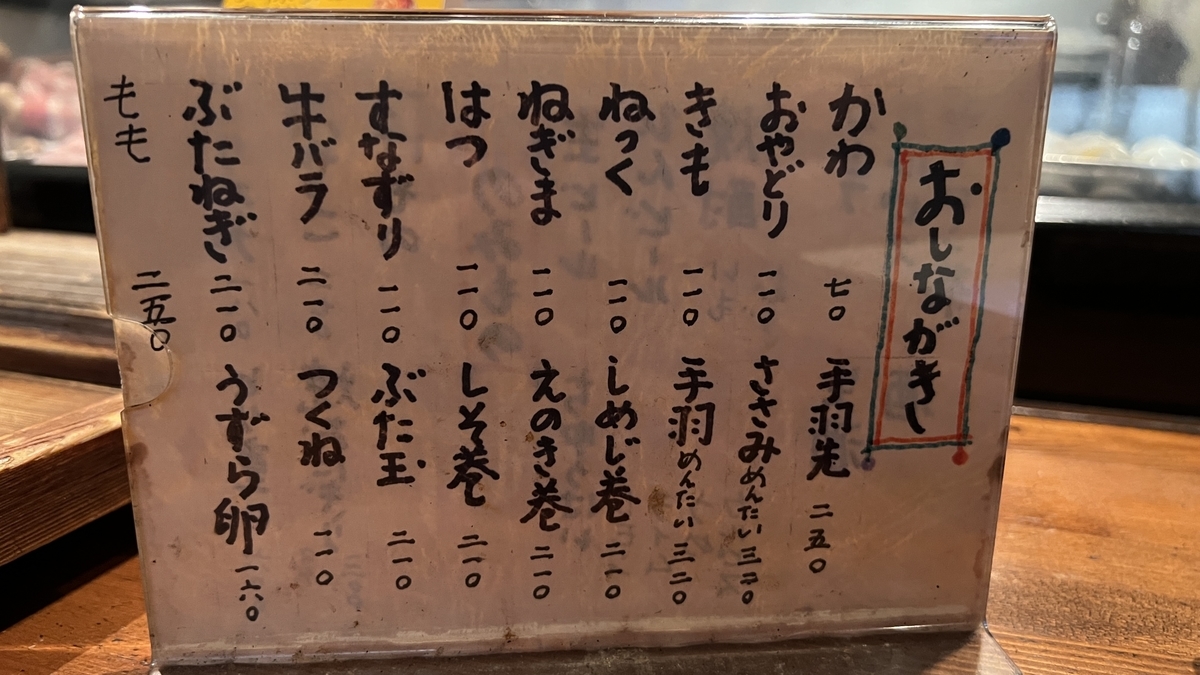 おしながき
かわ 七〇 手羽先 二五〇
おやどり 一一〇 ささみめんたい 三二〇
きも 一一〇 手羽めんたい 三二〇
ねっく 一一〇 しめじ巻 二一〇
ねぎま 一一〇 えのき巻 二一〇
はつ 一一〇 しそ巻 二一〇
すなずり 一一〇 ぶた玉 二一〇
牛バラ 二一〇 つくね 二一〇
ぶたねぎ 二一〇 うずら卵 一六〇
もも 二五〇